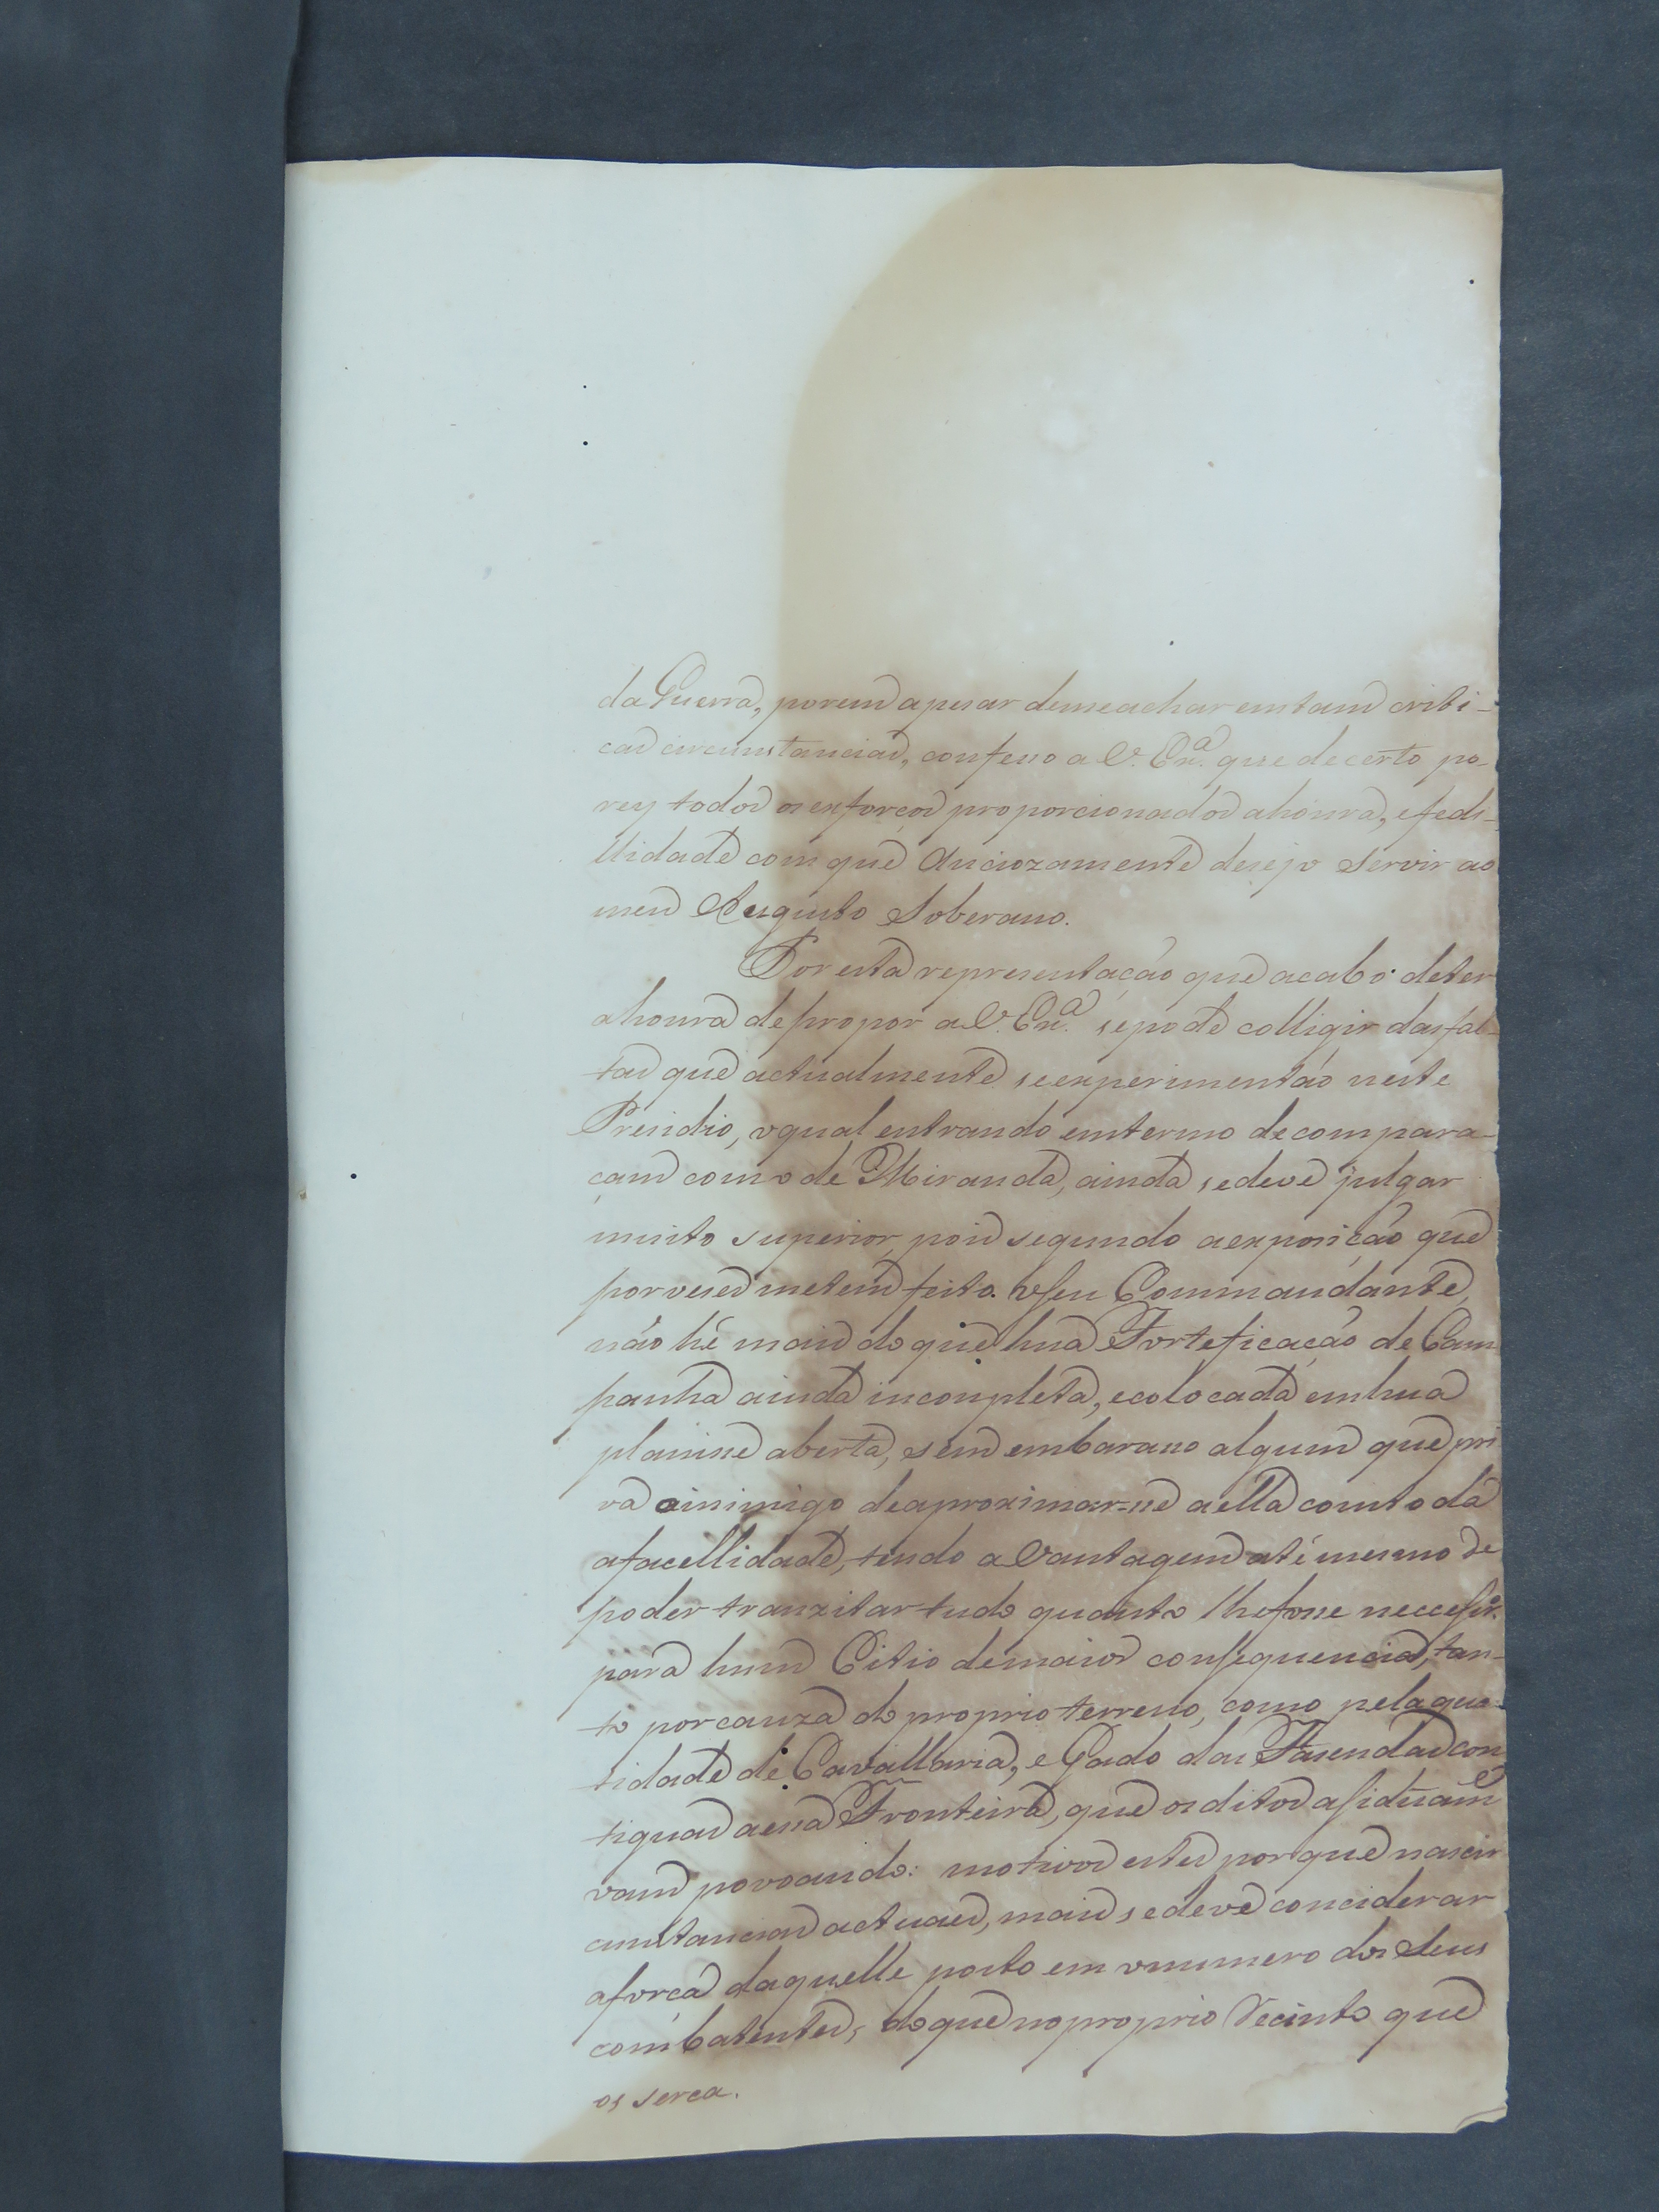 da Guerra, porem apesar demeachar emtam criti-
cas circunstancias, confesso a V. Exª. que decerto po-
rey todos os exforços proporcionados ahonra, efede-
llidade com que Anciozamente desejo servir ao
meu Augusto Soberano.
Por esta representação que acabo deter
ahonra depropor a V. Exª. sepode colligir dasfal-
tas que actualmente seexperimentão neste
Presidio, oqual entrando emtermo decompara-
çam como de Miranda, ainda sedeve julgar
muito superior, pois segundo aexposição que
por vezes metem feito oseu Commandante,
não hé mais do que hua Forteficação de Cam
panha ainda incompleta, ecolocada emhua
planisse aberta, sem embarasso algum que pri
va oinimigo deaproximar-se aella comtoda
afacellidade, tendo a Vantagem até mesmo de
poder tranzitar tudo quanto lhefosse neccessrº.
para hum Citio demaior consequencia, tan-
to porcauza do proprio terreno, como pelaqua-
tidade de Cavallaria, e Gado das Fasendas con
tiguas aessa Fronteira, que os ditos asiduamᵉ
vam povoando: motivos estes porque nascir
cunstancias actuaes, mais sedeve conciderar
aforça daquelle posto em onumero dos Seus
combatentes, doque noproprio Recinto que
os serca.